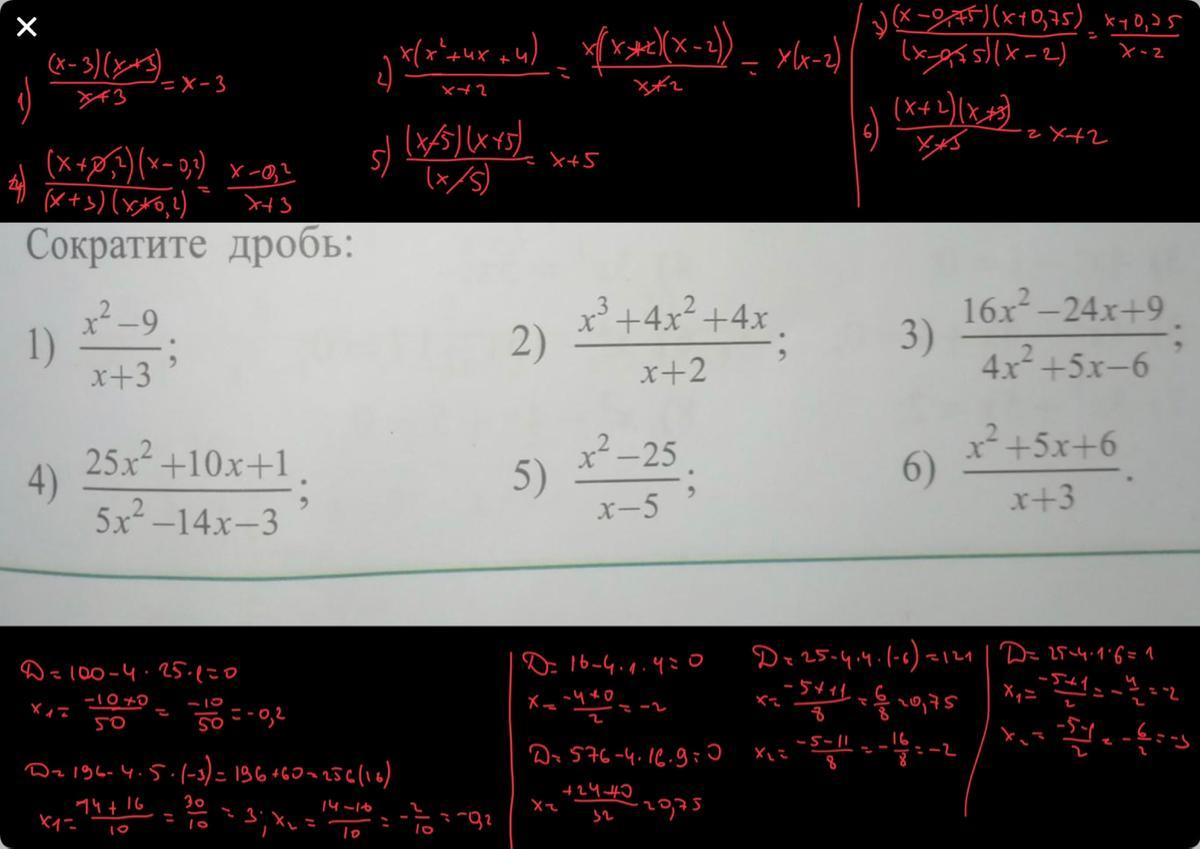 1) (x-3)(x+3)/x+3 = x-3
2) x(x²+4x+4)/x+2 = x((x+2)(x-2))/x+2 = x(x-2)
3) (x-0,75)(x+0,75)/(x-0,75)(x-2) = x+0,75/x-2
4) (x+0,2)(x-0,2)/(x+3)(x+0,2) = x-0,2/x+3
5) (x-5)(x+5)/(x-5) = x+5
6) (x+2)(x+3)/x+3 = x+2
Сократите дробь:
1) x²-9/x+3;
2) x³+4x²+4x/x+2;
3) 16x²-24x+9/4x²+5x-6;
4) 25x²+10x+1/5x²-14x-3;
5) x²-25/x-5;
6) x²+5x+6/x+3.
D=100-4·25·1=0
x₁=-10+0/50=-10/50=-0,2
D=196-4·5·(-3)=196+60=256(16)
x₁=14+16/10=30/10=3; x₂=14-16/10=-2/10=-0,2
D=16-4·1·4=0
x=-4+0/2=-2
D=576-4·16·9=0
x=+24+0/32=0,75
D=25-4·4·(-6)=121
x=-5+11/8=6/8=0,75
x₂=-5-11/8=-16/8=-2
D=25-4·1·6=1
x₁=-5+1/2=-4/2=-2
x₂=-5-1/2=-6/2=-3